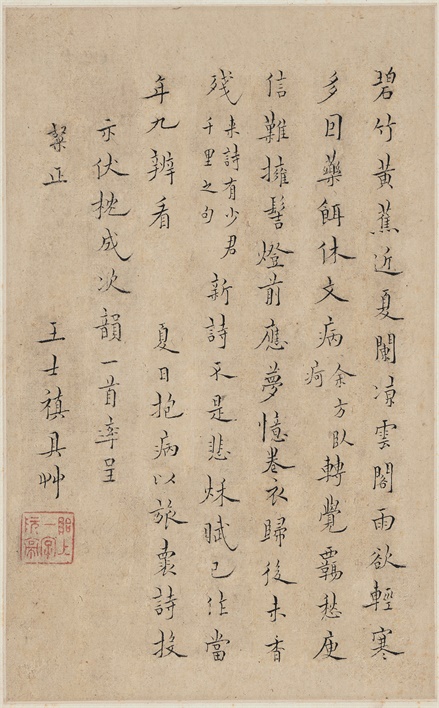 碧竹黃蕉近夏闌涼雲閣雨欲輕寒
多因藥餌休文病余方臥疴轉覺羈愁庾
信難擁髻燈前應夢憶卷衣歸後未香
殘來詩有少君千里之句新詩不是悲秋賦已作當
年九辨看 夏日抱病以旅褱詩投
示伏枕成次韻一首率呈
槃正 王士禛具艸
貽上一字阮亭